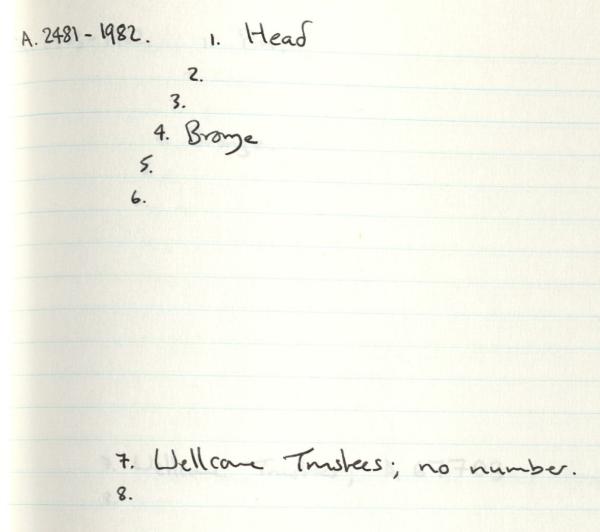 A. 2481-1982. 1. Head
2.
3.
4. Bronze
5.
6.
7. Wellcome Trustees; no number.
8.